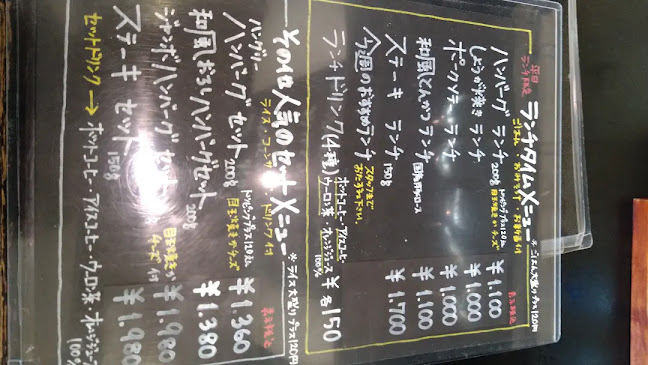 平日
ランチ限定
ランチタイムメニュー
※ごはん大盛りプラス120円
ごはん・みそしる・お新香付
表示税込
ハンバーグ ランチ 200g ¥1.100
トッピングプラス120円
目玉焼き or チーズ
しょうが焼き ランチ ¥1.000
ポークソテーランチ ¥1.000
和風とんかつランチ 国産豚ロース ¥1.100
ステーキ ランチ 150g ¥1700
今週のおすすめランチ
スタッフまで
おたずね下さい。
ランチドリンク(4種) ¥各150
ホットコーヒー・アイスコーヒー
ウーロン茶・オレンジジュース
100%
その他人気のセットメニュー
※ライス大盛りプラス120円
ライス・コーンサラダ・ドリンク付
表示税込
ハングリー
ハンバーグ セット 200g ¥1.360
トッピングプラス120円
目玉焼き or チーズ
和風おろしハンバーグセット 200g ¥1.380
ジャンボハンバーグ セット ¥1.980
目玉焼き
チーズ 付
ステーキ セット 150g ¥1.980
セットドリンク → ホットコーヒー・アイスコーヒー・ウーロン茶・オレンジジュース
100%